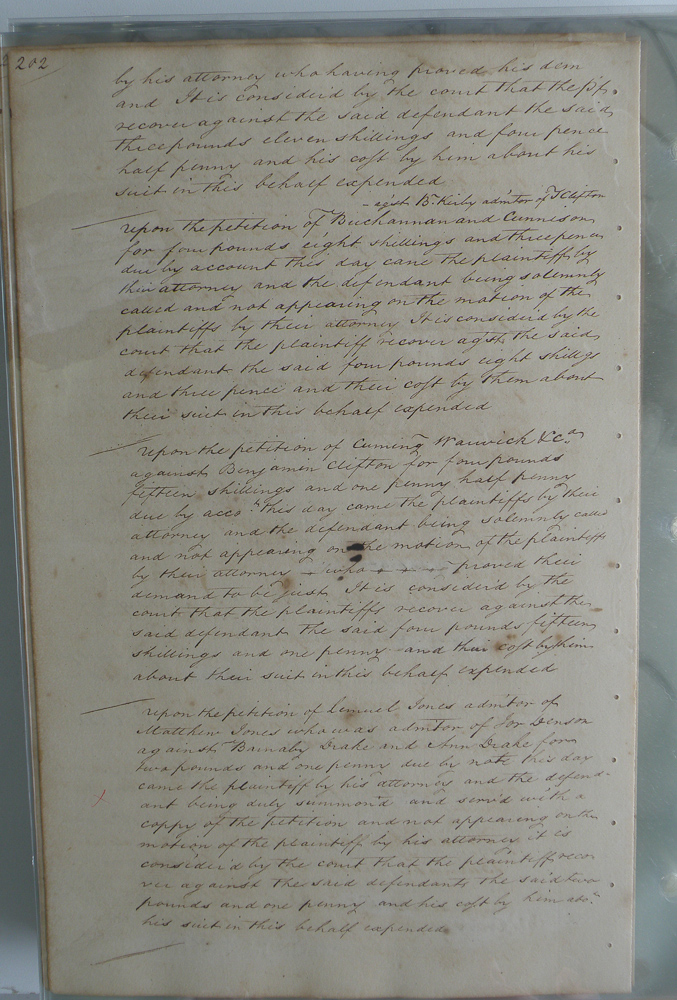 202
by his attorney who having proved his dem
and It is considerd by the court that the ptf
recover against the said defendant the said
three pounds eleven shillings and four pence
half penny and his cost by him about his
suit in this behalf expended
- agst B. Kirby admtor of T Clifton
Upon the petition of Buchannan and Cunnison
for four pounds eight shillings and three pence
due by account this day cane the plaintiffs by
their attorney and the defendant being solemnly
called and not appearing on the motion of the
plaintiffs by their attorney It is considerd by the
court that the plaintiff recover agst the said
defendant the said four pounds eight shillgs
and three pence and their cost by them about
their suit in this behalf expended
Upon the petition of Cuming Warwick &Co
against Benjamin Clifton for four pounds
fifteen shillings and one penny half penny
due by acco.t this day came the plaintiffs by their
attorney and the defendant being solemnly called
and not appearing on the motion of the plaintiffs
by their attorney who proved their
demand to be just It is considerd by the
court that the plaintiffs recover against the
said defendant the said four pounds fifteen
shillings and one penny and their cost by them
about their suit in this behalf expended
Upon the petition of Lemuel Jones admtor of
Matthew Jones who was admtor of Jor Denson
against Barnaby Drake and Ann Drake for
two pounds and one penny due by note this day
came the plaintiff by his attorney and the defend-
ant being duly summond and servd with a
coppy of the petition and not appearing on the
motion of the plaintiff by his attorney it is
considerd by the court that the plaintiff reco
ver against the said defendants the said two
pounds and one penny and his cost by him abo.t
his suit in this behalf expended